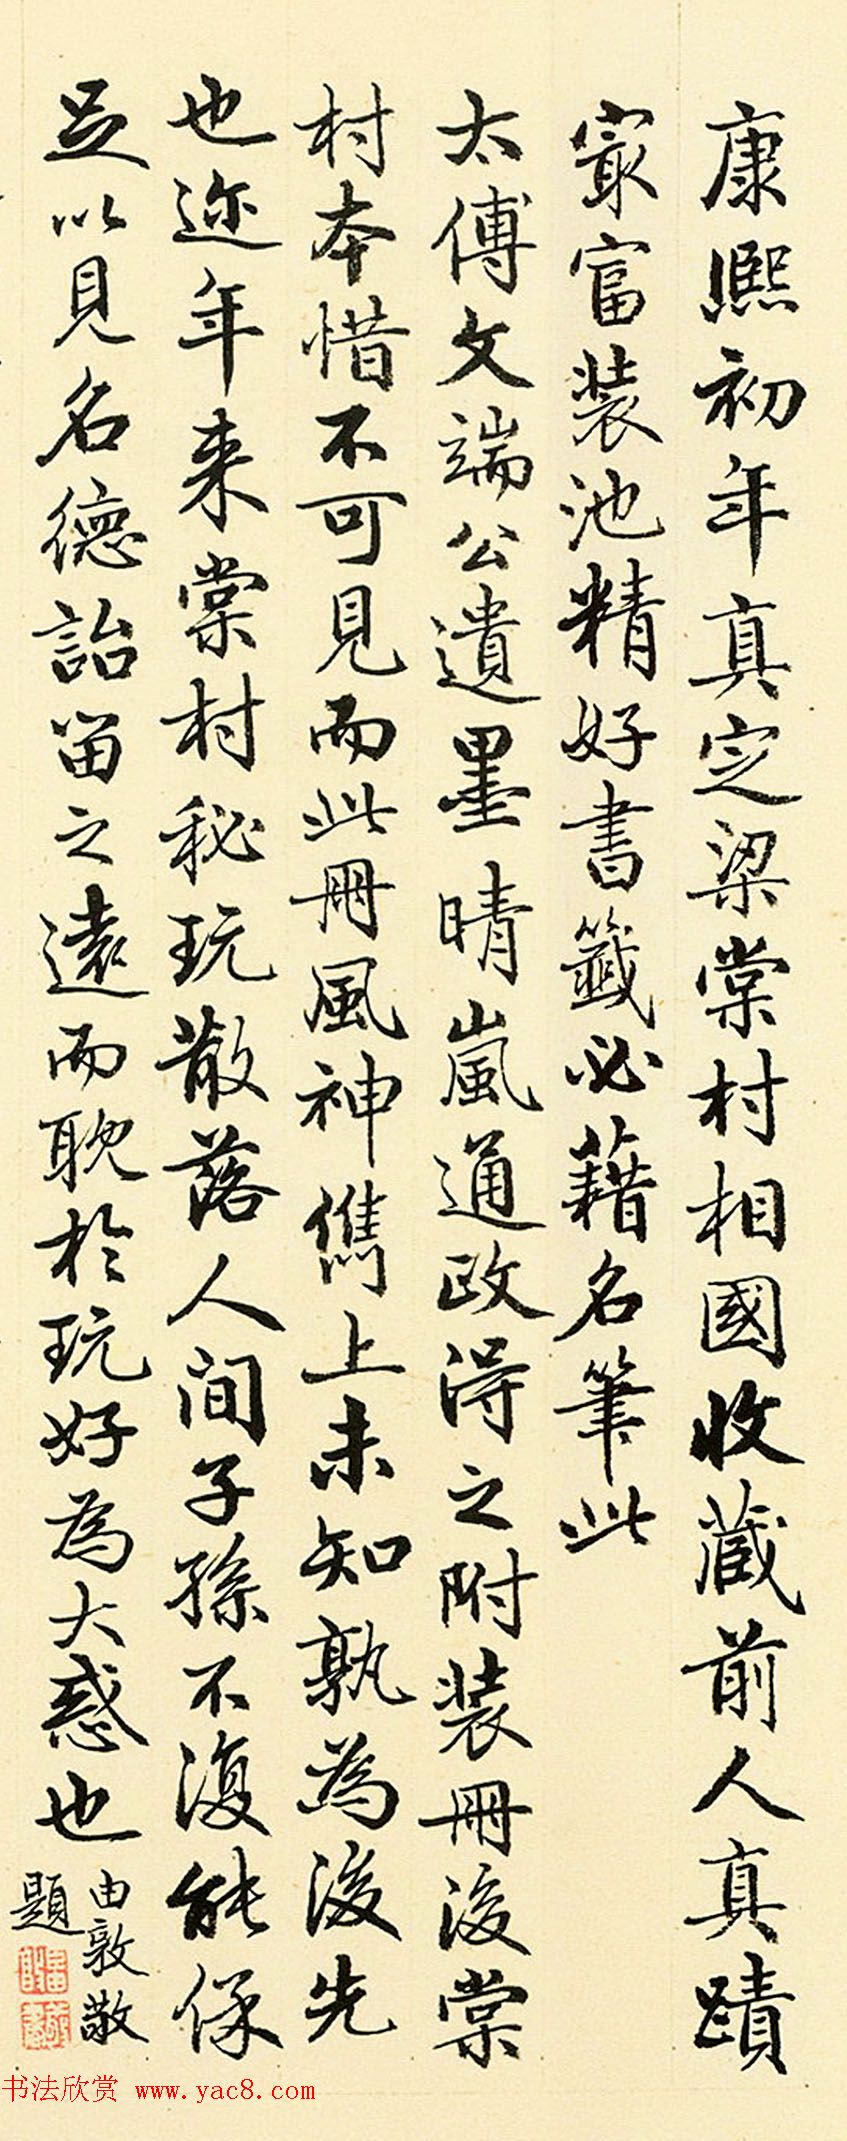 康熙初年真定梁棠村相國收蔵前人真蹟
冣富装池精好書籤必藉名筆此
太傅文端公遺墨晴嵐通政淂之附装冊後棠
村本惜不可見而此冊風神儁上未知孰為後先
也迩年来棠村秘玩散落人间子孫不復能保
足以見名德詒留之遠而耽於玩好為大惑也
由敦敬
題
书法欣赏 www.yac8.com